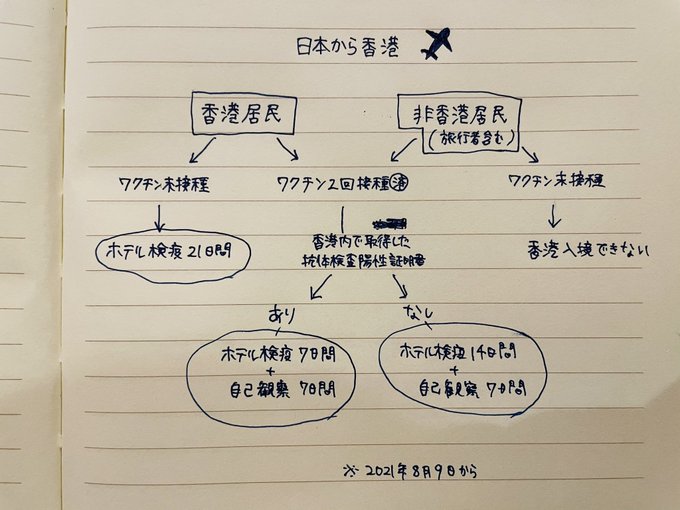 日本から香港
香港居民
非香港居民
(旅行者含む)
ワクチン未接種
ワクチン2回接種済
ワクチン未接種
ホテル検疫21日間
香港内で取得した
抗体検査陽性証明書
香港入境できない
あり
なし
ホテル検疫7日間
+
自己観察 7日間
ホテル検疫14日間
+
自己観察 7日間
※ 2021年8月9日から